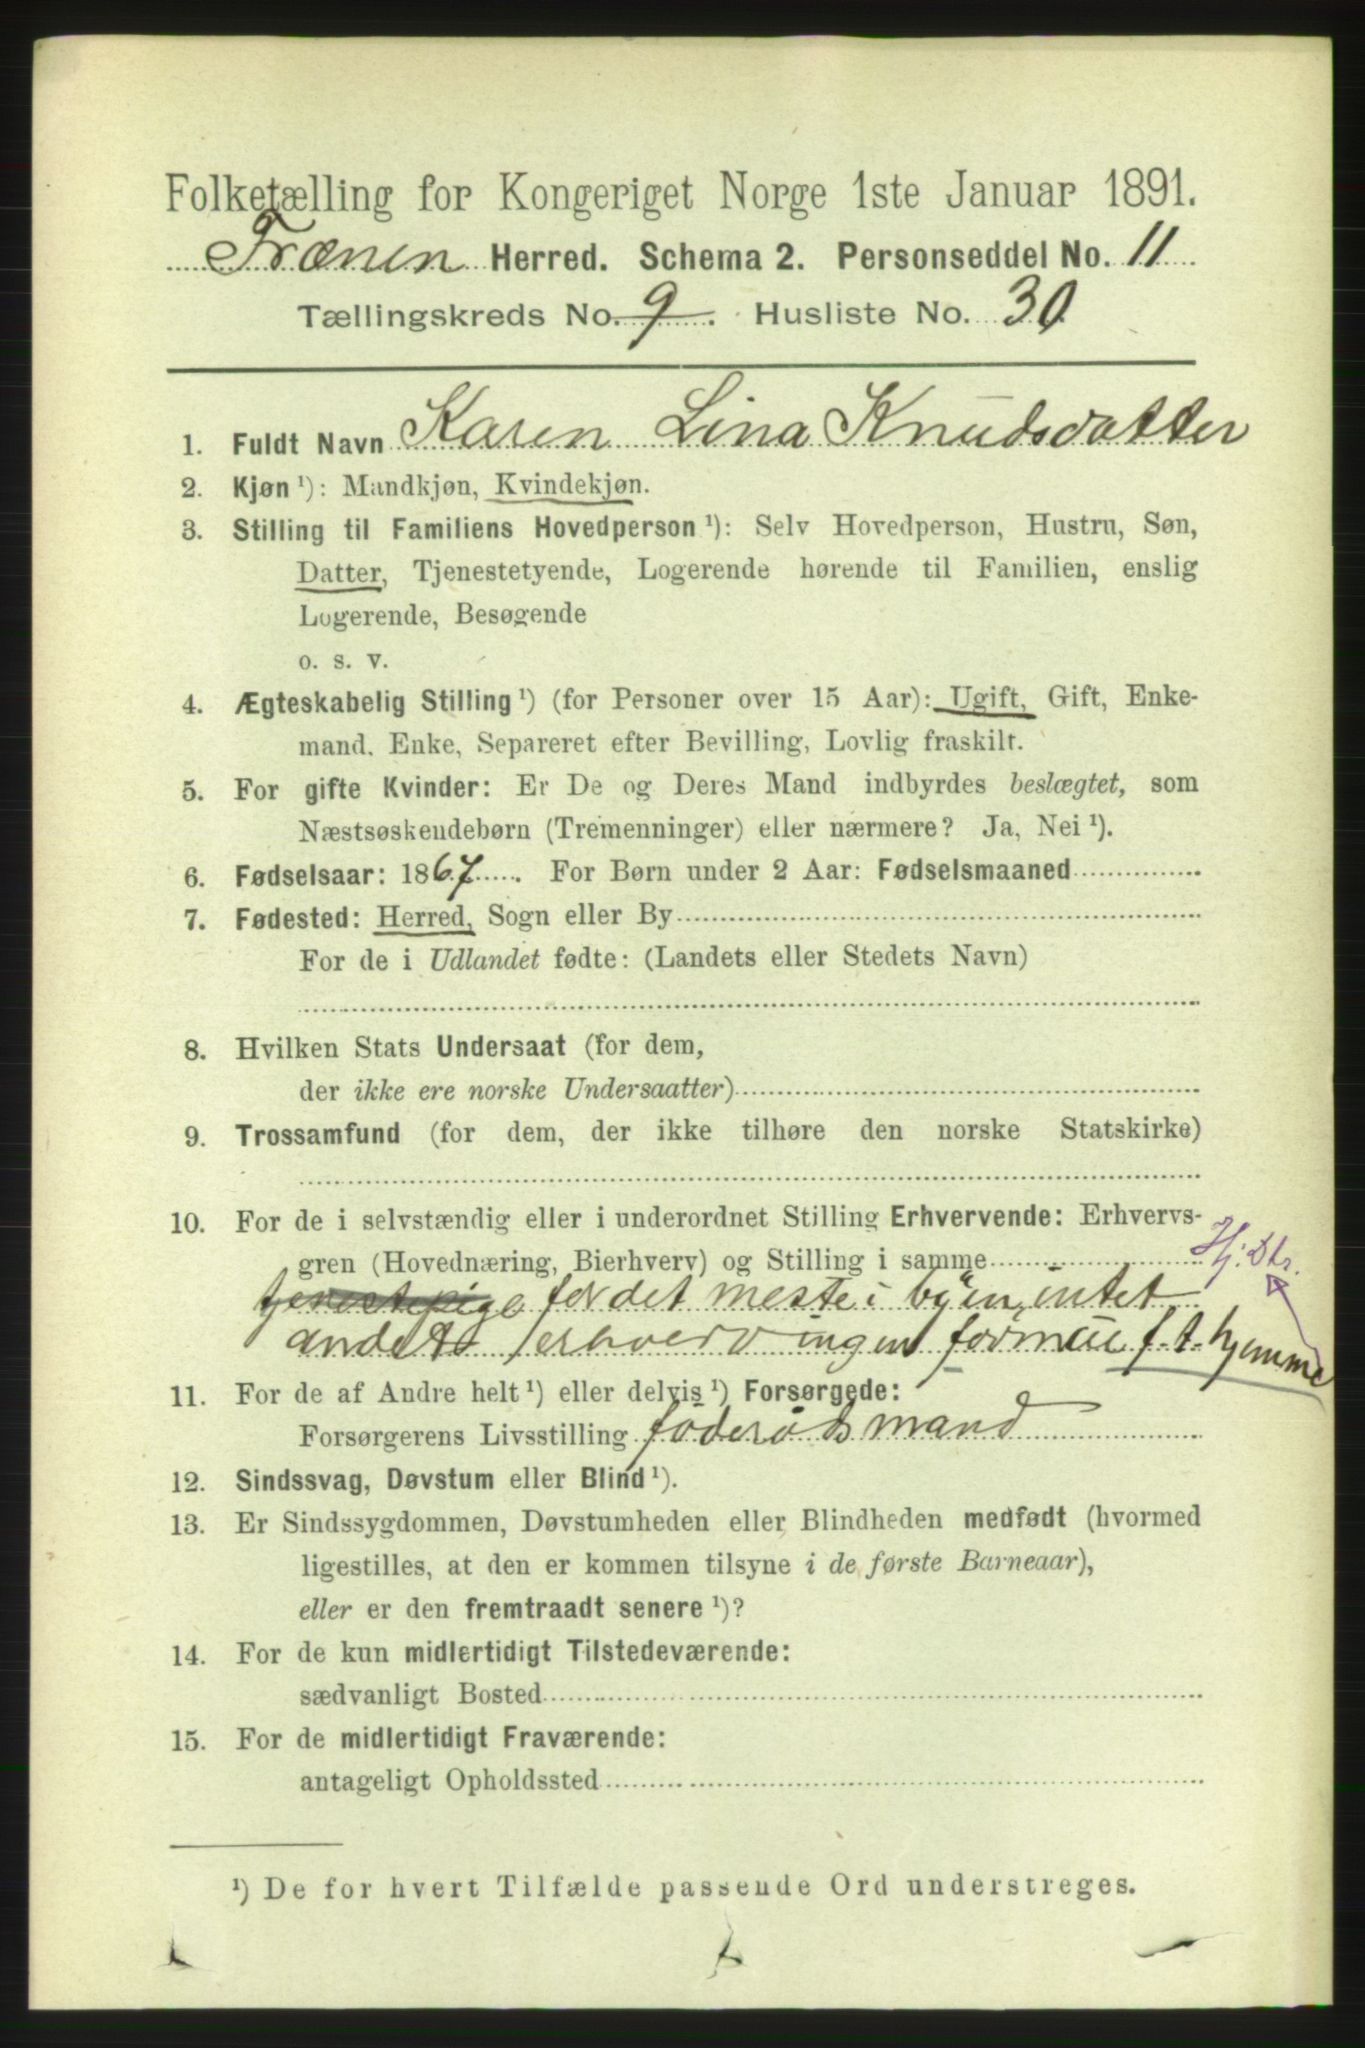 Folketælling for Kongeriget Norge 1ste Januar 1891.
Frænen Herred. Schema 2. Personseddel No. 11
Tællingskreds No. 9. Husliste No. 30
1. Fuldt Navn Karen Lina Knudsdatter
2. Kjøn ¹): Mandkjøn, Kvindekjøn.
3. Stilling til Familiens Hovedperson ¹): Selv Hovedperson, Hustru, Søn,
Datter, Tjenestetyende, Logerende hørende til Familien, enslig
Logerende, Besøgende
o. s. v.
4. Ægteskabelig Stilling ¹) (for Personer over 15 Aar): Ugift, Gift, Enke-
mand, Enke, Separeret efter Bevilling, Lovlig fraskilt.
5. For gifte Kvinder: Er De og Deres Mand indbyrdes beslægtet, som
Næstsøskendebørn (Tremenninger) eller nærmere? Ja, Nei ¹).
6. Fødselsaar: 1867. For Børn under 2 Aar: Fødselsmaaned
7. Fødested: Herred, Sogn eller By
For de i Udlandet fødte: (Landets eller Stedets Navn)
8. Hvilken Stats Undersaat (for dem,
der ikke ere norske Undersaatter)
9. Trossamfund (for dem, der ikke tilhøre den norske Statskirke)
10. For de i selvstændig eller i underordnet Stilling Erhvervende: Erhvervs-
gren (Hovednæring, Bierhverv) og Stilling i samme Hj: Dtr.
tjenestepige for det meste i byen, intet
andet erhverv ingen formue f. t. hjemme
11. For de af Andre helt ¹) eller delvis ¹) Forsørgede:
Forsørgerens Livsstilling føderådsmand
12. Sindssvag, Døvstum eller Blind ¹).
13. Er Sindssygdommen, Døvstumheden eller Blindheden medfødt (hvormed
ligestilles, at den er kommen tilsyne i de første Barneaar),
eller er den fremtraadt senere ¹)?
14. For de kun midlertidigt Tilstedeværende:
sædvanligt Bosted
15. For de midlertidigt Fraværende:
antageligt Opholdssted
¹) De for hvert Tilfælde passende Ord understreges.